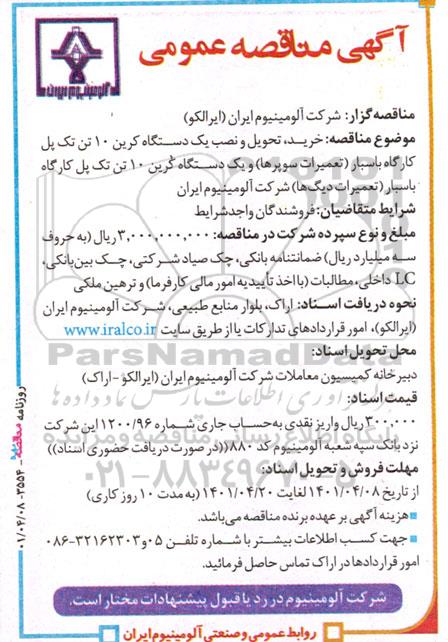 آگهی مناقصه عمومی
آلومینیوم ایران
مناقصه‌گزار: شرکت آلومینیوم ایران (ایرالکو)
موضوع مناقصه: خرید، تحویل و نصب یک دستگاه کرین ۱۰ تن تک پل
کارگاه باسبار (تعمیرات سوپرها) و یک دستگاه کرین ۱۰ تن تک پل کارگاه
باسبار (تعمیرات دیگ‌ها) شرکت آلومینیوم ایران
شرایط متقاضیان: فروشندگان واجد شرایط
مبلغ و نوع سپرده شرکت در مناقصه: ۳,۰۰۰,۰۰۰,۰۰۰ ریال (به حروف
سه میلیارد ریال) ضمانتنامه بانکی، چک صیاد شرکتی، چک بین‌بانکی،
LC داخلی، مطالبات (با اخذ تأییدیه امور مالی کارفرما) و ترهین ملکی
نحوه دریافت اسناد: اراک، بلوار منابع طبیعی، شرکت آلومینیوم ایران
(ایرالکو)، امور قراردادهای تدارکات یا از طریق سایت www.iralco.ir
محل تحویل اسناد:
دبیرخانه کمیسیون معاملات شرکت آلومینیوم ایران (ایرالکو - اراک)
قیمت اسناد:
۳۰۰,۰۰۰ ریال واریز نقدی به‌حساب جاری شماره ۱۲۰۰/۹۶ این شرکت
نزد بانک سپه شعبه آلومینیوم کد ۸۸۰ ((در صورت دریافت حضوری اسناد))
مهلت فروش و تحویل اسناد:
از تاریخ ۱۴۰۱/۰۴/۰۸ لغایت ۱۴۰۱/۰۴/۲۰ (به مدت ۱۰ روز کاری)
هزینه آگهی بر عهده برنده مناقصه می‌باشد.
جهت کسب اطلاعات بیشتر با شماره تلفن ۰۵ و ۰۸۶-۳۲۱۶۲۳۰۳
امور قراردادها در اراک تماس حاصل فرمائید.
شرکت آلومینیوم در رد یا قبول پیشنهادات مختار است.
روابط عمومی و صنعتی آلومینیوم ایران
روزنامه مناقصه ۳۵۵۴ - ۰۱/۰۴/۰۸
ParsNamadData
۰۲۱-۸۸۳۴۹۶۷۰-۵